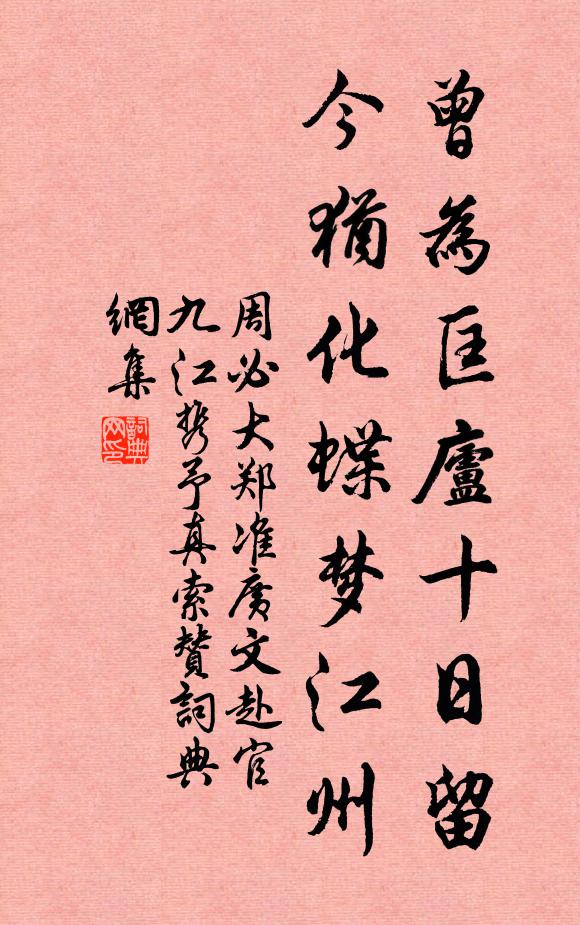 曾為匡廬十日留
今猶化蝶梦江州
周必大郑准廣文赴官
九江携予真索赞詞典
網集
詞典
网印